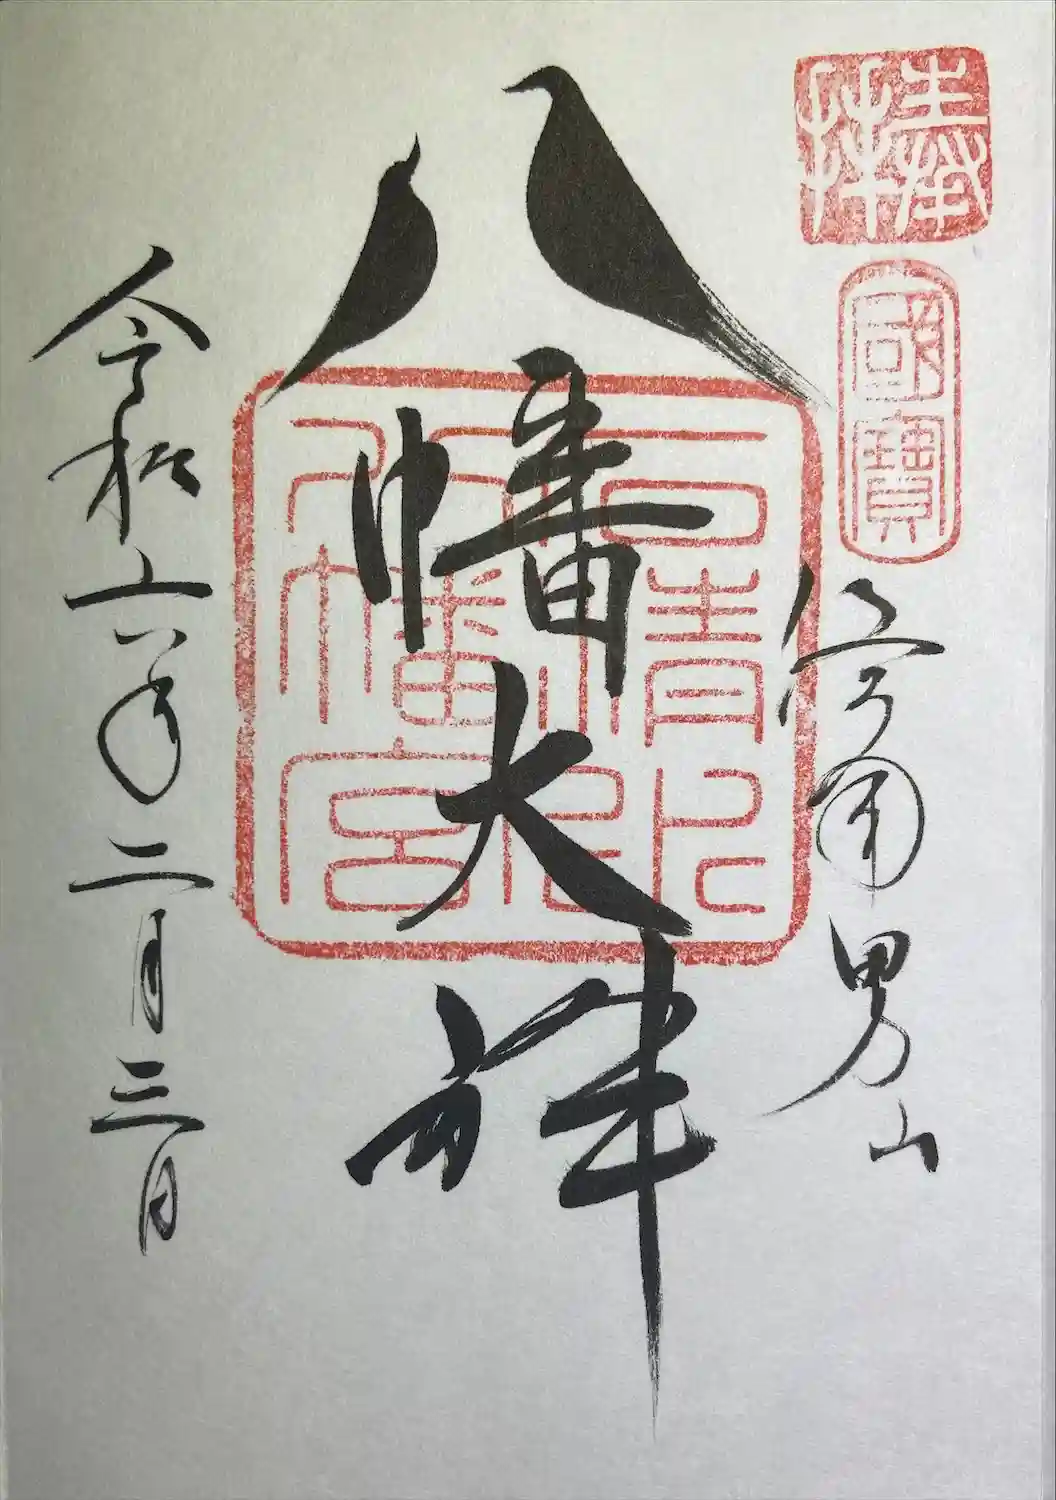 奉拝
國寶
洛南男山
八幡大神
石清水八幡宮
令和六年二月三日